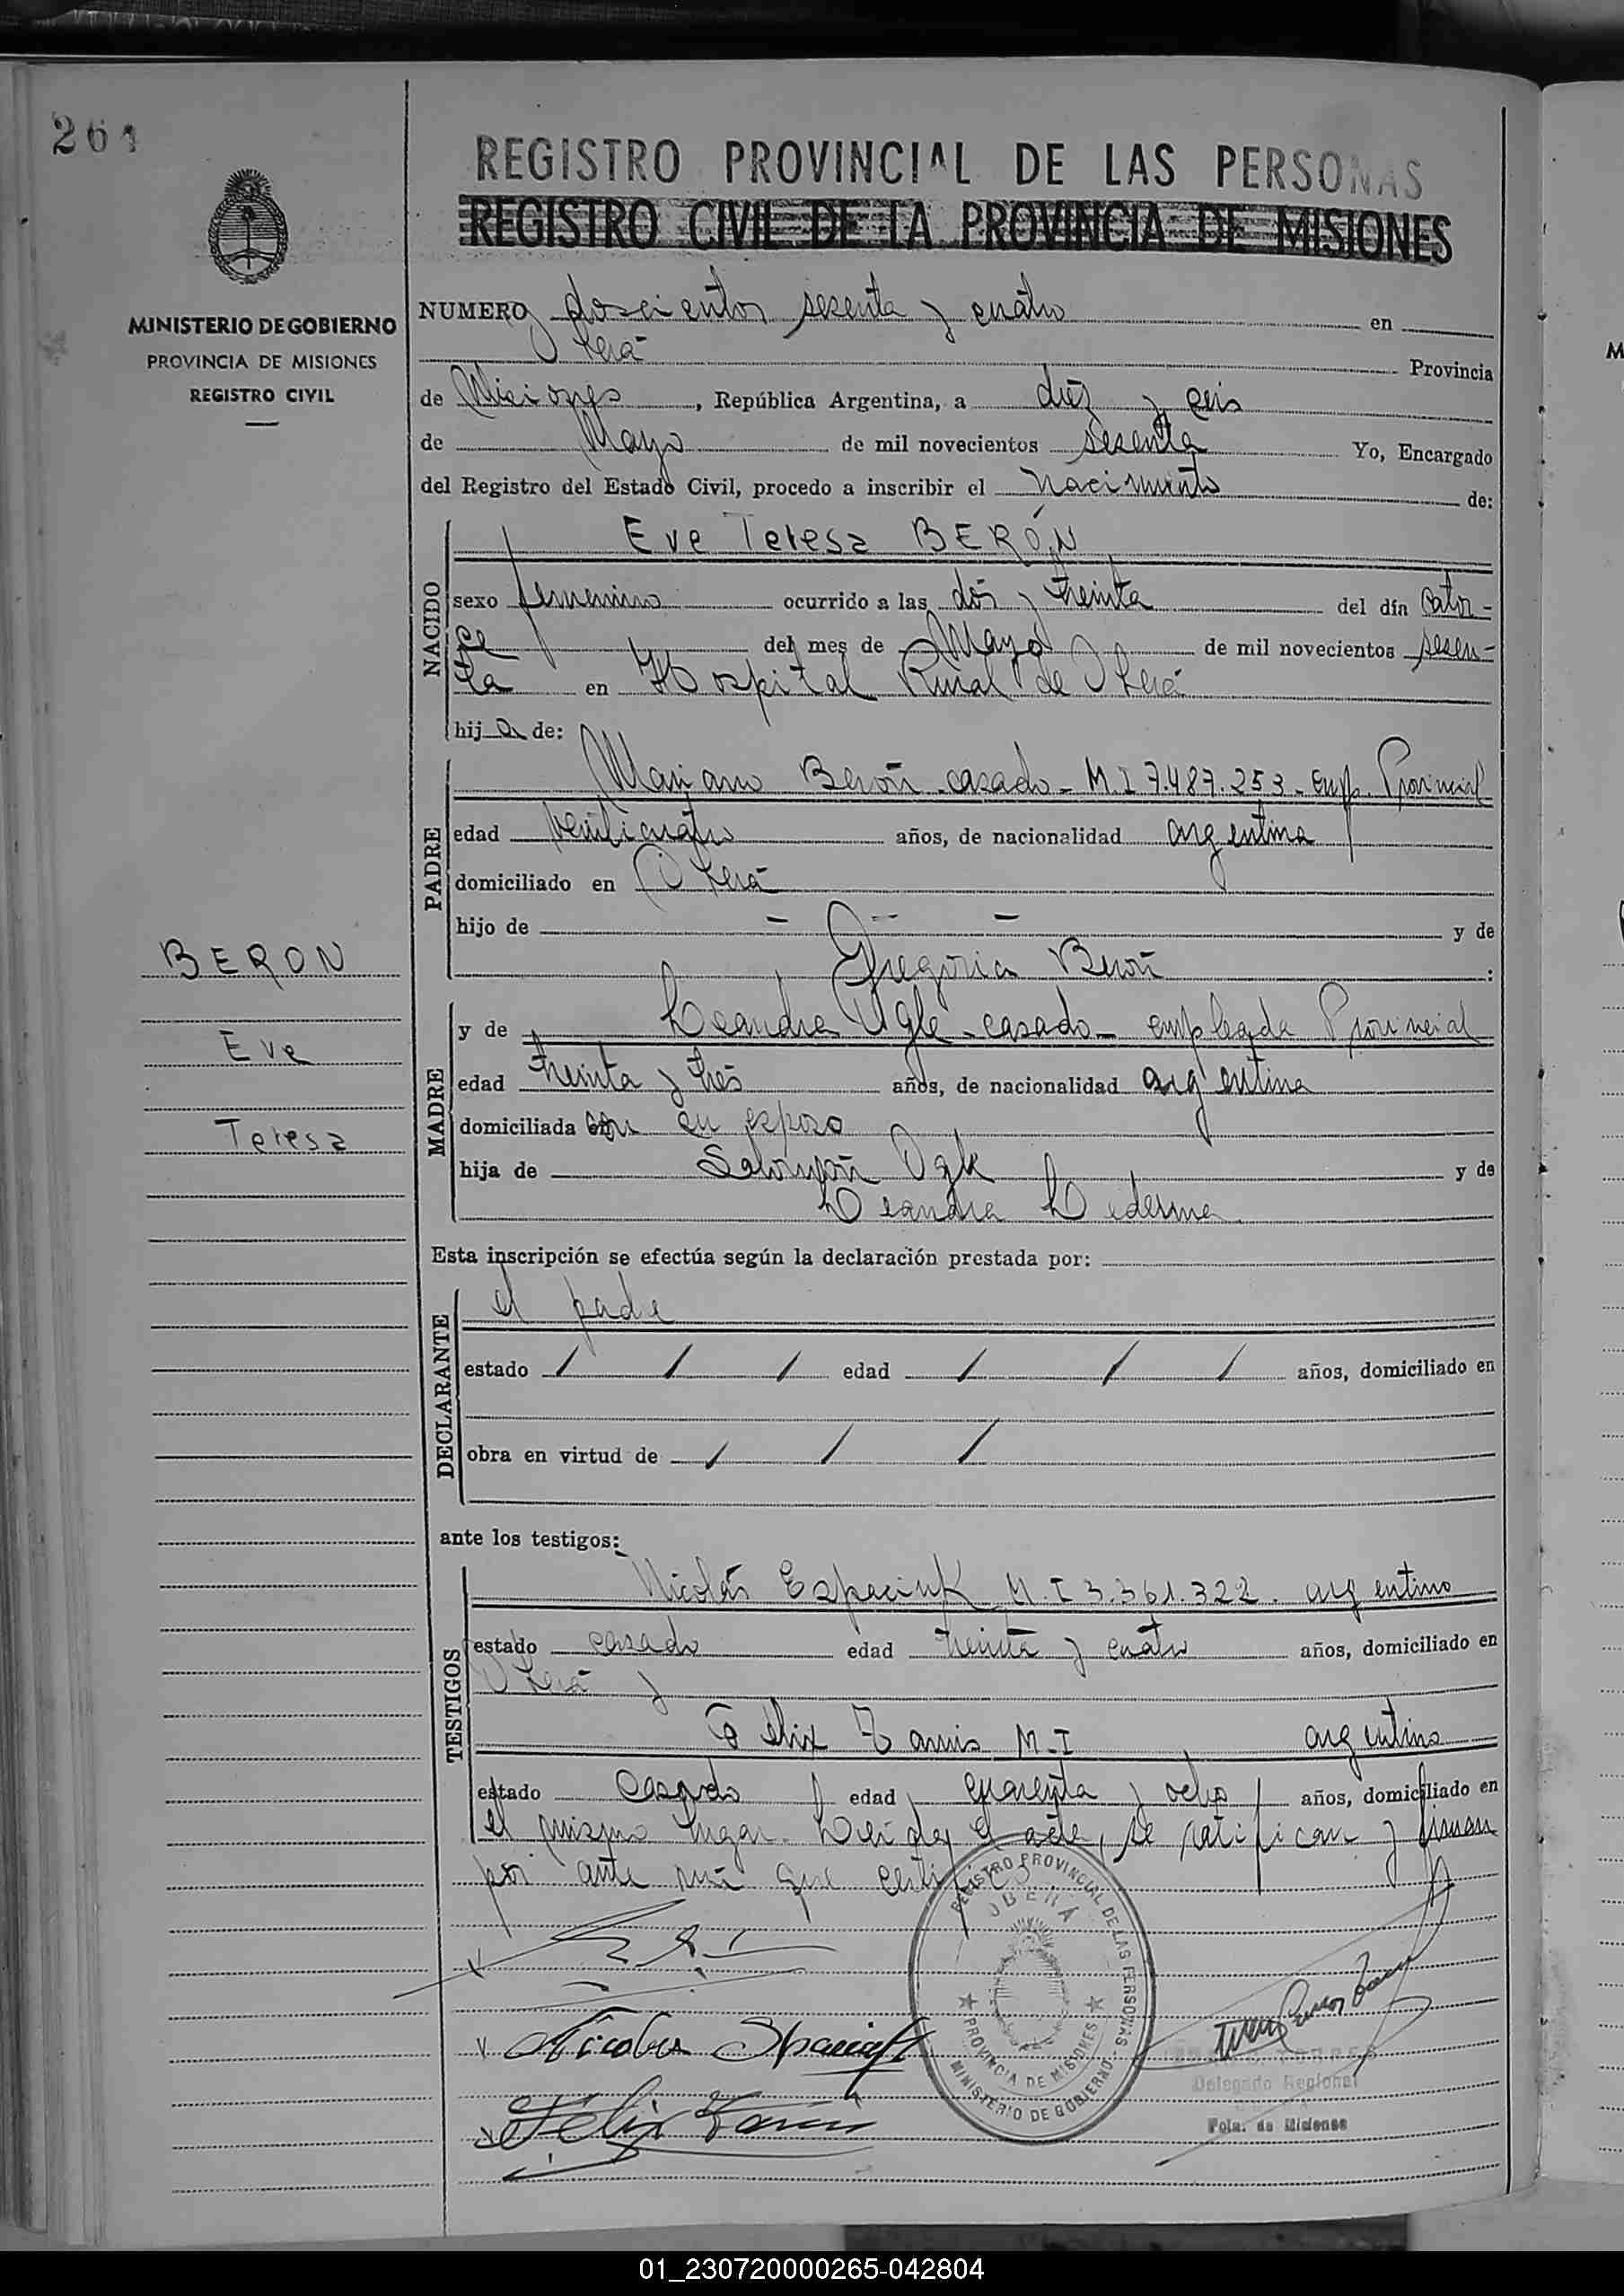 264
REGISTRO PROVINCIAL DE LAS PERSONAS
REGISTRO CIVIL DE LA PROVINCIA DE MISIONES
MINISTERIO DE GOBIERNO
PROVINCIA DE MISIONES
REGISTRO CIVIL
NUMERO doscientos sesenta y cuatro en
Oberá Provincia
de Misiones, República Argentina, a diez y seis
de Mayo de mil novecientos sesenta Yo, Encargado
del Registro del Estado Civil, procedo a inscribir el nacimiento de:
NACIDO
Eve Teresa BERÓN
sexo femenino ocurrido a las dos y treinta del día cator-
ce del mes de Mayo de mil novecientos sesen-
ta en Hospital Rural de Oberá
hija de:
PADRE
Mariano Berón casado - M.I 7.487.253 - emp. Provincial
edad veinticuatro años, de nacionalidad argentina
domiciliado en Oberá
hijo de — — — y de
Gregoria Berón :
BERON
Eve
Teresa
MADRE
y de Leandra Ogle - casado - empleada Provincial
edad treinta y tres años, de nacionalidad argentina
domiciliada con su esposo
hija de Salomón y de
Leandra Ledesma
Esta inscripción se efectúa según la declaración prestada por:
DECLARANTE
el padre
estado / / / edad / / / años, domiciliado en
obra en virtud de / / /
ante los testigos:
TESTIGOS
Nicolás M.I 3.361.322. argentino
estado casado edad treinta y cuatro años, domiciliado en
Oberá y
Felix M.I argentino
estado casado edad cuarenta y ocho años, domiciliado en
el mismo lugar. Leida el acta, se ratifican y firman
por ante mí que certifico
REGISTRO PROVINCIAL DE LAS PERSONAS
OBERÁ
PROVINCIA DE MISIONES
MINISTERIO DE GOBIERNO
Nicolas
Félix
Delegado Regional
Pcia. de Misiones
01_230720000265-042804